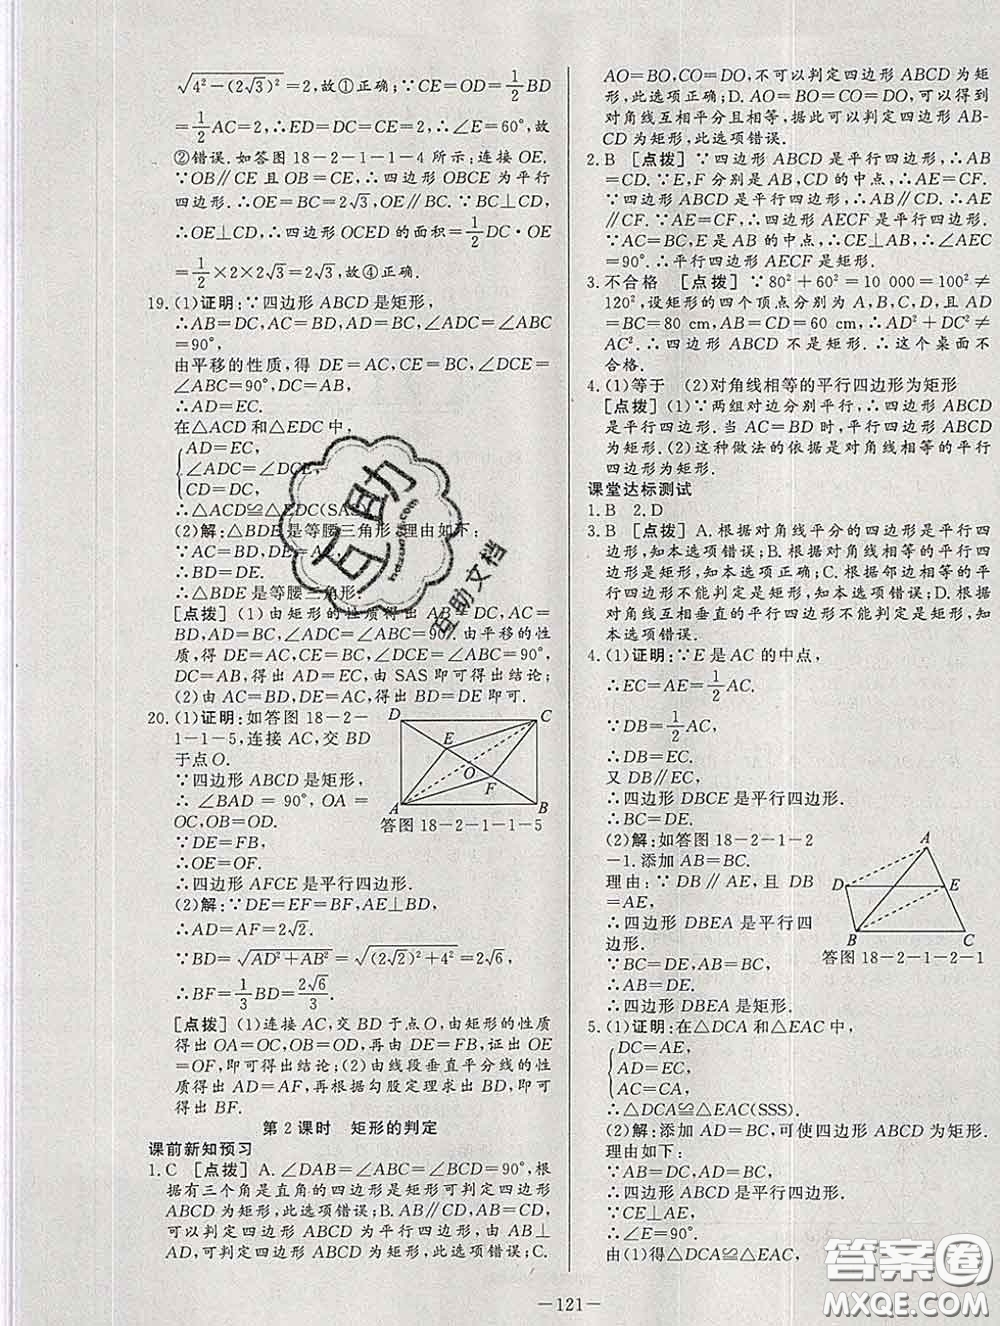 √4²-(2√3)²=2,故①正确;∵CE=OD=1/2BD
=1/2AC=2,∴ED=DC=CE=2,∴∠E=60°,故
②错误.如答图18-2-1-1-4所示;连接OE.
∵OB∥CE且OB=CE,∴四边形OBCE为平行
四边形.∴OE=BC=2√3,OE∥BC.∵BC⊥CD,
∴OE⊥CD,∴四边形OCED的面积=1/2DC·OE
=1/2×2×2√3=2√3,故④正确.
19.(1)证明:∵四边形ABCD是矩形,
∴AB=DC,AC=BD,AD=BC,∠ADC=∠ABC
=90°,
由平移的性质,得DE=AC,CE=BC,∠DCE=
∠ABC=90°,DC=AB,
∴AD=EC.
在△ACD和△EDC中,
{AD=EC,
∠ADC=∠DCE,
CD=DC,
∴△ACD≌△EDC(SAS
(2)解:△BDE是等腰三角形.理由如下:
∵AC=BD,DE=AC,
∴BD=DE.
∴△BDE是等腰三角形.
[点拨](1)由矩形的性质得出AB=DC,AC=
BD,AD=BC,∠ADC=∠ABC=90°.由平移的性
质,得DE=AC,CE=BC,∠DCE=∠ABC=90°,
DC=AB,得出AD=EC,由SAS即可得出结论;
(2)由AC=BD,DE=AC,得出BD=DE即可.
20.(1)证明:如答图18-2-
1-1-5,连接AC,交BD
于点O.
∵四边形ABCD是矩形,
∴∠BAD=90°,OA=
OC,OB=OD.
∵DE=FB,
∴OE=OF.
∴四边形AFCE是平行四边形.
D
C
E
O
F
A
B
答图18-2-1-1-5
(2)解:∵DE=EF=BF,AE⊥BD,
∴AD=AF=2√2.
∵BD=√AD²+AB²=√(2√2)²+4²=2√6,
∴BF=1/3BD=2√6/3.
[点拨](1)连接AC,交BD于点O,由矩形的性质
得出OA=OC,OB=OD,再由DE=FB,证出OE
=OF,即可得出结论;(2)由线段垂直平分线的性
质得出AD=AF,再根据勾股定理求出BD,即可得
出BF.
第2课时 矩形的判定
课前新知预习
1.C [点拨] A.∠DAB=∠ABC=∠BCD=90°,根
据有三个角是直角的四边形是矩形可判定四边形
ABCD为矩形,此选项错误;B.AB∥CD,AB=CD,
可以判定四边形ABCD为平行四边形,由AB⊥
AD,可判定四边形ABCD为矩形,此选项错误;C.
AO=BO,CO=DO,不可以判定四边形ABCD为矩
形,此选项正确;D.AO=BO=CO=DO,可以得到
对角线互相平分且相等,可以判定四边形AB-
CD为矩形,此选项错误.
2.B [点拨] ∵四边形ABCD是平行四边形,∴AB
=CD.∵E,F分别是AB,CD的中点,∴AE=CF.
∵四边形ABCD是平行四边形,∴AB∥CD.∴AE
∥CF.∵AE=CF,∴四边形AECF是平行四边形.
∵AC=BC,E是AB的中点,∴CE⊥AB,∴∠AEC
=90°,∴平行四边形AECF是矩形.
3.不合格 [点拨] ∵80²+60²=10 000=100²≠
120²,设矩形的四个顶点分别为A,B,C,D,且AD
=BC=80 cm,AB=CD=60 cm,∴AD²+DC²≠
AC².∴四边形ABCD不是矩形.∴这个桌面不
合格.
4.(1)等于 (2)对角线相等的平行四边形为矩形
[点拨](1)∵两组对边分别平行,∴四边形ABCD
是平行四边形.当AC=BD时,平行四边形ABCD
为矩形.(2)这种做法的依据是对角线相等的平行
四边形为矩形.
课堂达标测试
1.B 2.D
3.B [点拨] A.根据对角线平分的四边形是平行四
边形,知本选项错误;B.根据对角线相等的平行四
边形是矩形,知本选项正确;C.根据邻边相等的平行
四边形不能判定是矩形,知本选项错误;D.根据
对角线互相垂直的平行四边形不能判定是矩形,知
本选项错误.
4.(1)证明:∵E是AC的中点,
∴EC=AE=1/2AC.
∵DB=1/2AC,
∴DB=EC.
又DB∥EC,
∴四边形DBCE是平行四边形.
∴BC=DE.
(2)解:如答图18-2-1-2
-1.添加AB=BC.
理由:∵DB∥AE,且DB=
AE,
∴四边形DBEA是平行四
边形.
∵BC=DE,AB=BC,
∴AB=DE.
∴四边形DBEA是矩形.
A
D
E
B
C
答图18-2-1-2-1
5.(1)证明:在△DCA和△EAC中,
{DC=AE,
AD=EC,
AC=CA,
∴△DCA≌△EAC(SSS).
(2)解:添加AD=BC,可使四边形ABCD为矩形.
理由如下:
∵AB=DC,AD=BC,
∴四边形ABCD是平行四边形.
∵CE⊥AE,
∴∠E=90°.
由(1)得△DCA≌△EAC,
—121—
互助
互助文档
答案圈
MXQE.COM